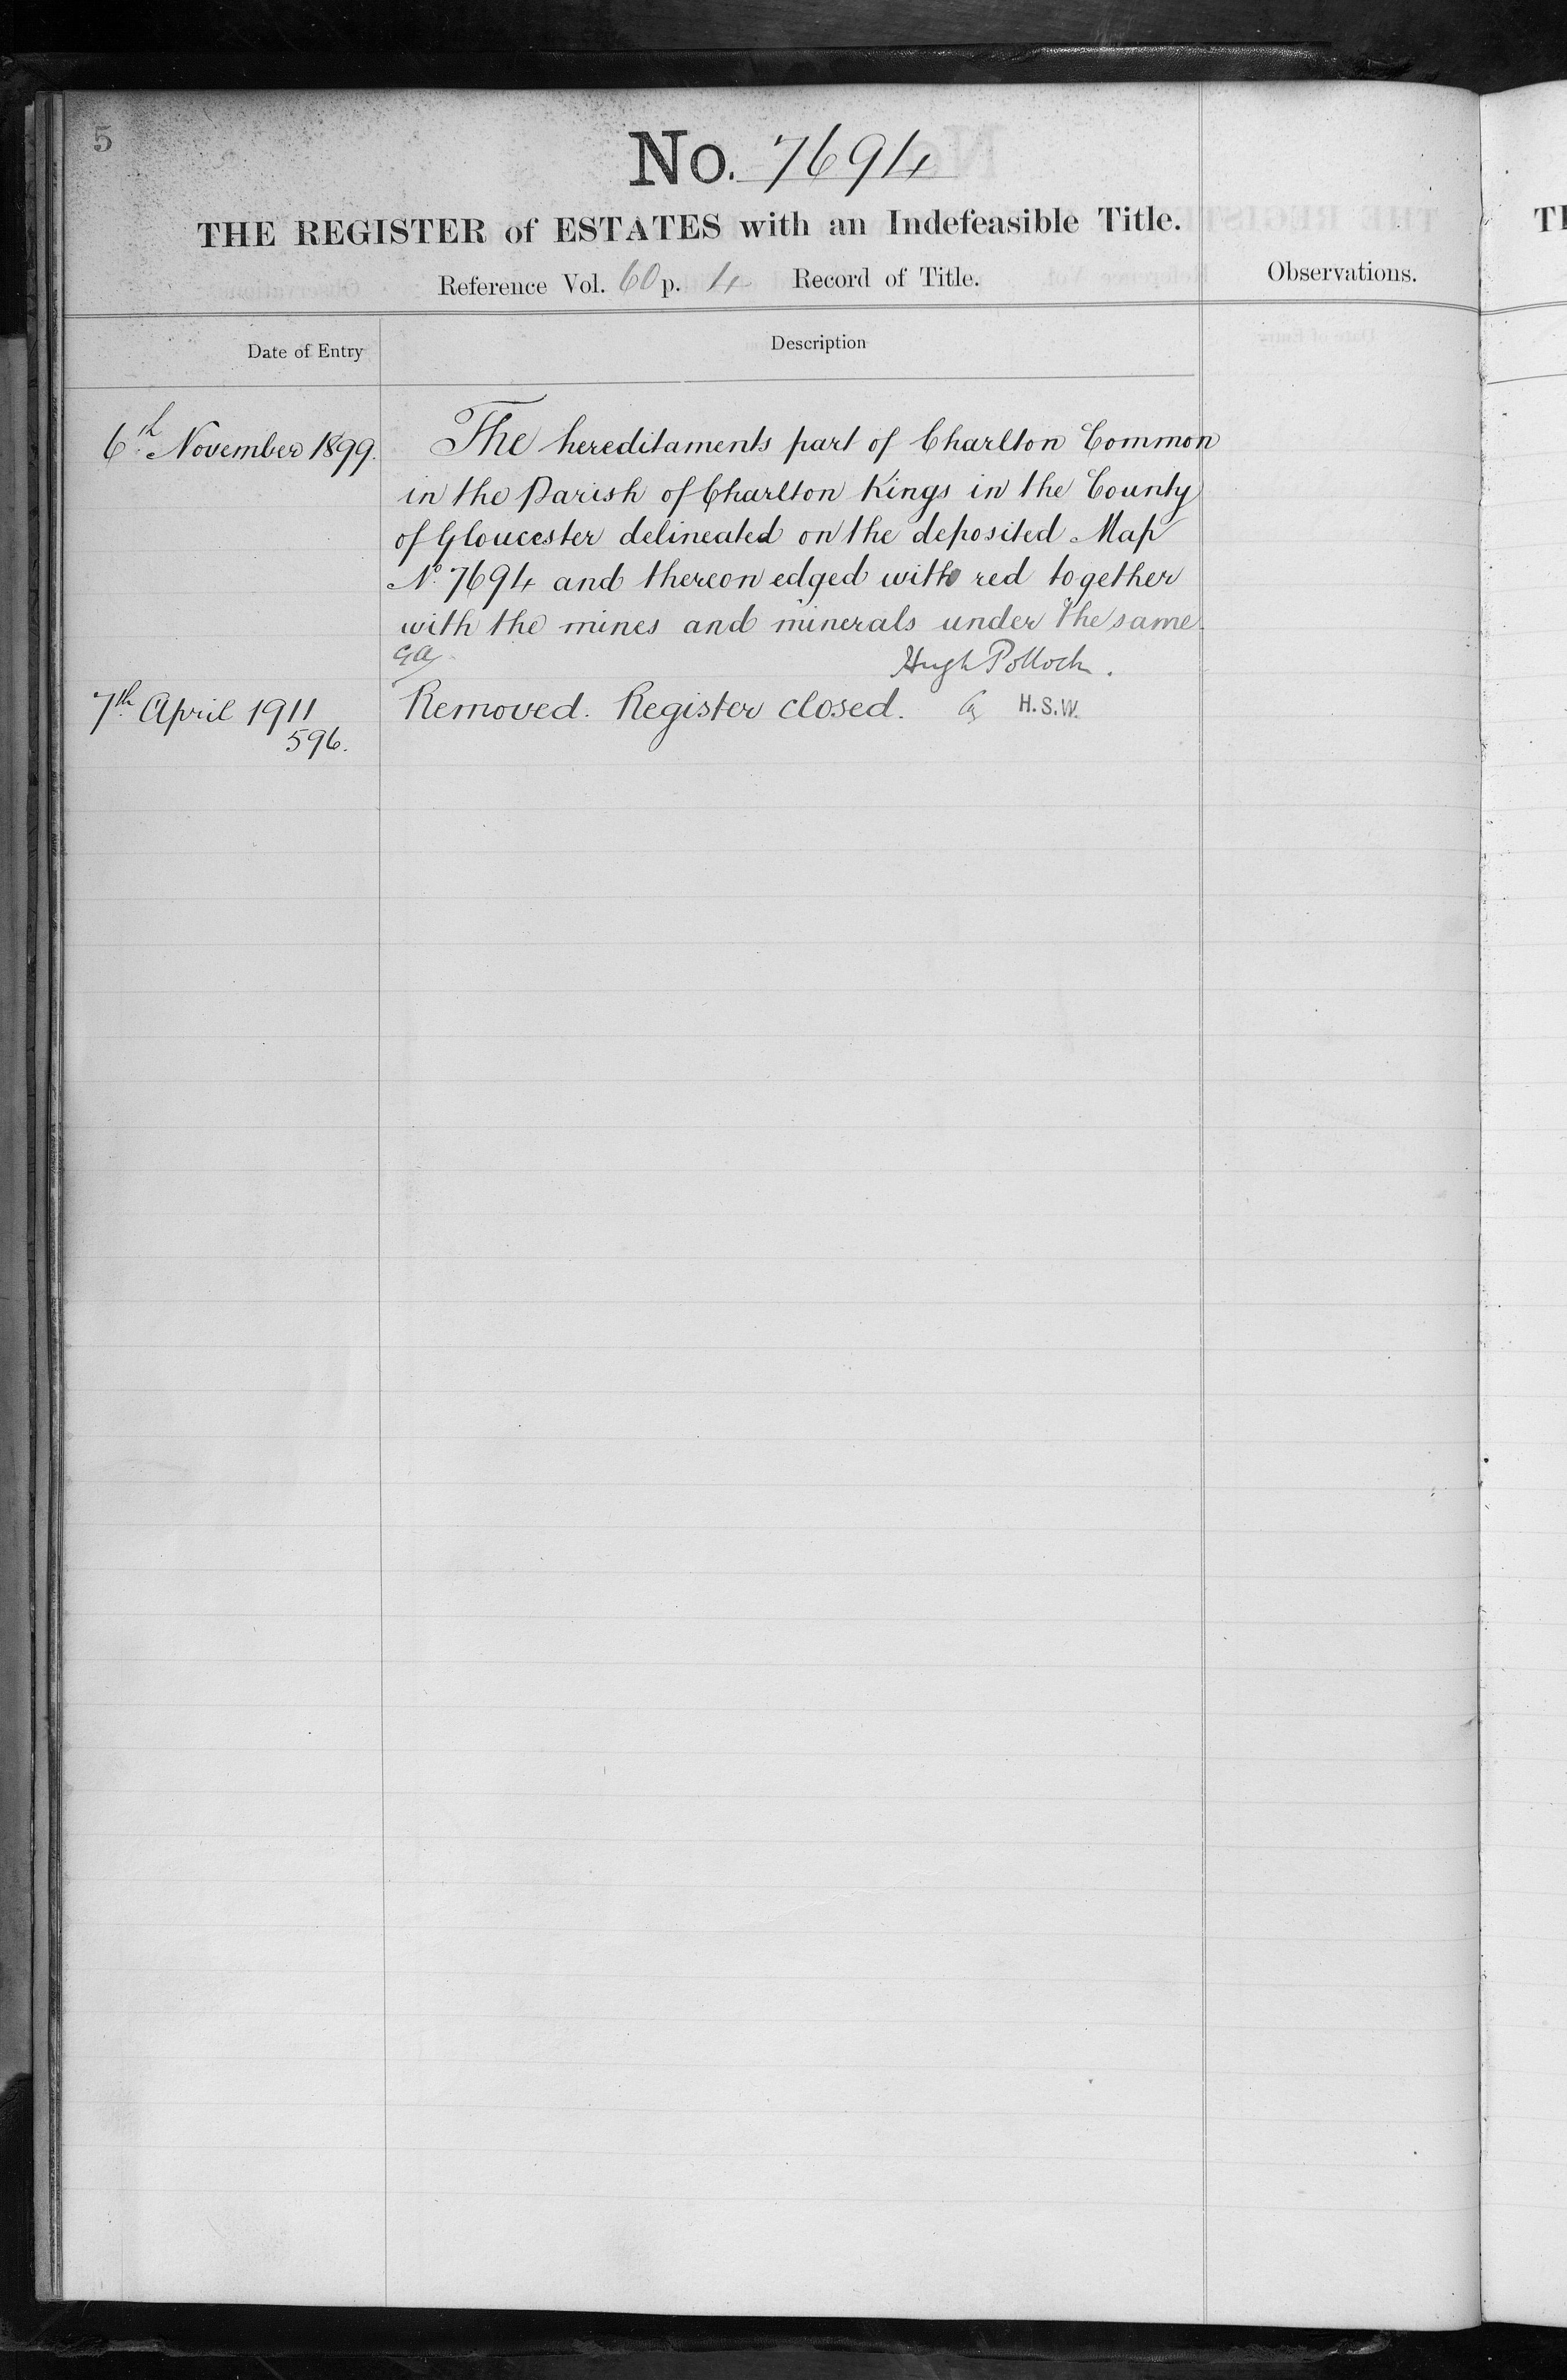 5
No. 7694
THE REGISTER of ESTATES with an Indefeasible Title.
Reference Vol. 60 p. 4 Record of Title.
Observations.
Date of Entry
Description
6th November 1899.
The hereditaments part of Charlton Common
in the Parish of Charlton Kings in the County
of Gloucester delineated on the deposited Map
No. 7694 and thereon edged with red together
with the mines and minerals under the same.
Hugh Pollock.
7th April 1911
596.
Removed. Register closed. H.S.W.